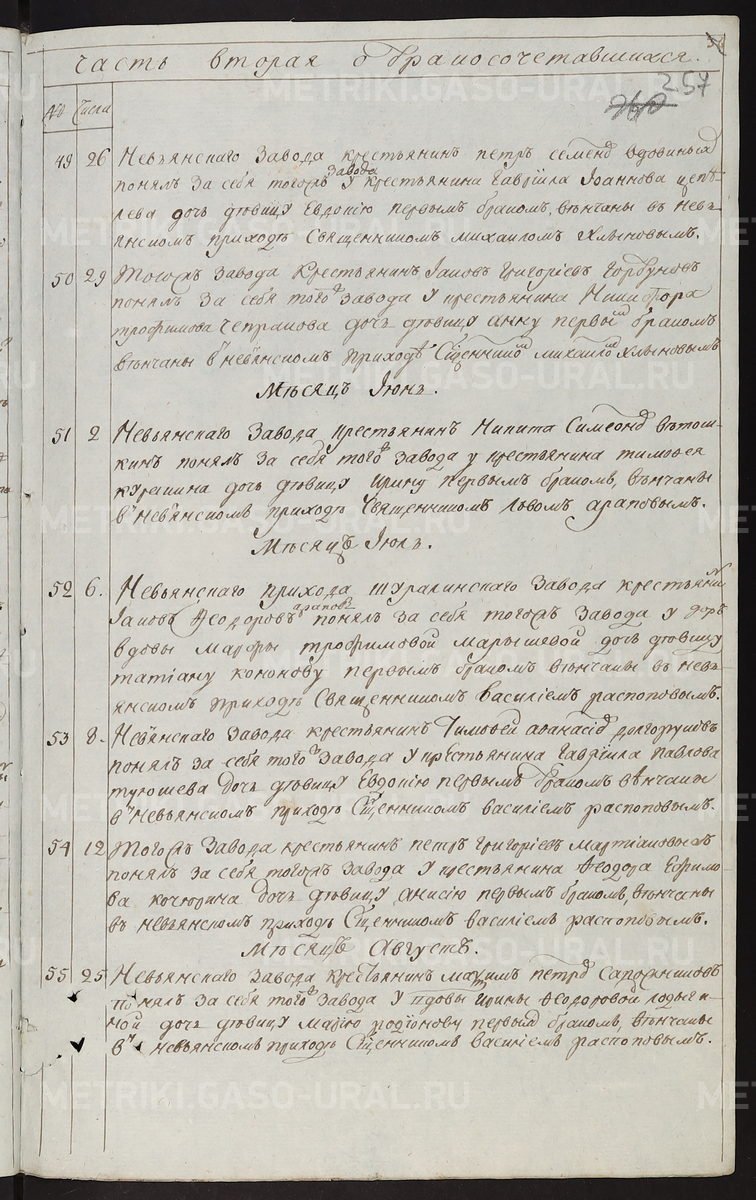 часть вторая о бракосочетавшихся.
257
№ Числа
49 26 Невьянскаго Завода крестьянинъ петръ семенов вдовиныхъ
понялъ за себя тогожъ завода у крестьянина Гаврiила Iоаннова цепѣ-
лева дочь дѣвицу Евдокiю первымъ бракомъ, вѣнчаны въ невь-
янскомъ приходѣ Священникомъ михаиломъ Хлыновымъ.
50 29 Тогожъ завода Крестьянинъ Iаковъ Григорiевъ Горбуновъ
понялъ за себя того ж завода у крестьянина Никифора
трофимова чепракова дочь дѣвицу анну первым бракомъ
вѣнчаны в невьянскомъ приходѣ Сщенником михаилом Хлыновымъ
Мѣсяцъ Iюнь.
51 2 Невьянскаго Завода крестьянинъ Никита Симеонов вѣтош-
кинъ понялъ за себя того ж завода у крестьянина тимофея
курешина дочь дѣвицу Ирину первымъ бракомъ, вѣнчаны
в невьянскомъ приходѣ Священникомъ львомъ араповымъ.
Мѣсяцъ Iюль.
52 6. Невьянскаго прихода шуралинскаго завода крестьянин
Iаковъ Ѳеодоровъ араповъ понялъ за себя тогожъ завода у
вдовы марфы трофимовой марышевой дочь дѣвицу
татiану кононову первымъ бракомъ вѣнчаны въ невь-
янскомъ приходѣ Священникомъ василiемъ распоповымъ.
53 8. Невьянскаго завода крестьянинъ Тимофей афанасiев долгоруковъ
понялъ за себя того ж завода у крестьянина Гаврiила Павлова
тукошева дочь дѣвицу Евдокiю первымъ бракомъ вѣнчаны
в невьянскомъ приходѣ Сщенникомъ василiемъ распоповымъ.
54 12 Тогожъ завода крестьянинъ петръ Григорiевъ мартiановыхъ
понялъ за себя тогожъ завода у крестьянина Ѳеодора Ефимо-
ва кочюрина дочь дѣвицу анисiю первымъ бракомъ, вѣнчаны
въ невьянскомъ приходѣ Сщенникомъ василiемъ распоповымъ.
Мѣсяцъ Августъ.
55 25 Невьянскаго завода крестьянинъ максимъ петров Сапожниковъ
понялъ за себя того ж завода у вдовы Ирины Ѳеодоровой лодыги-
ной дочь дѣвицу марiю родiонову первым бракомъ, вѣнчаны
в невьянскомъ приходѣ Сщенникомъ василiемъ распоповымъ.
METRIKI.GASO-URAL.RU